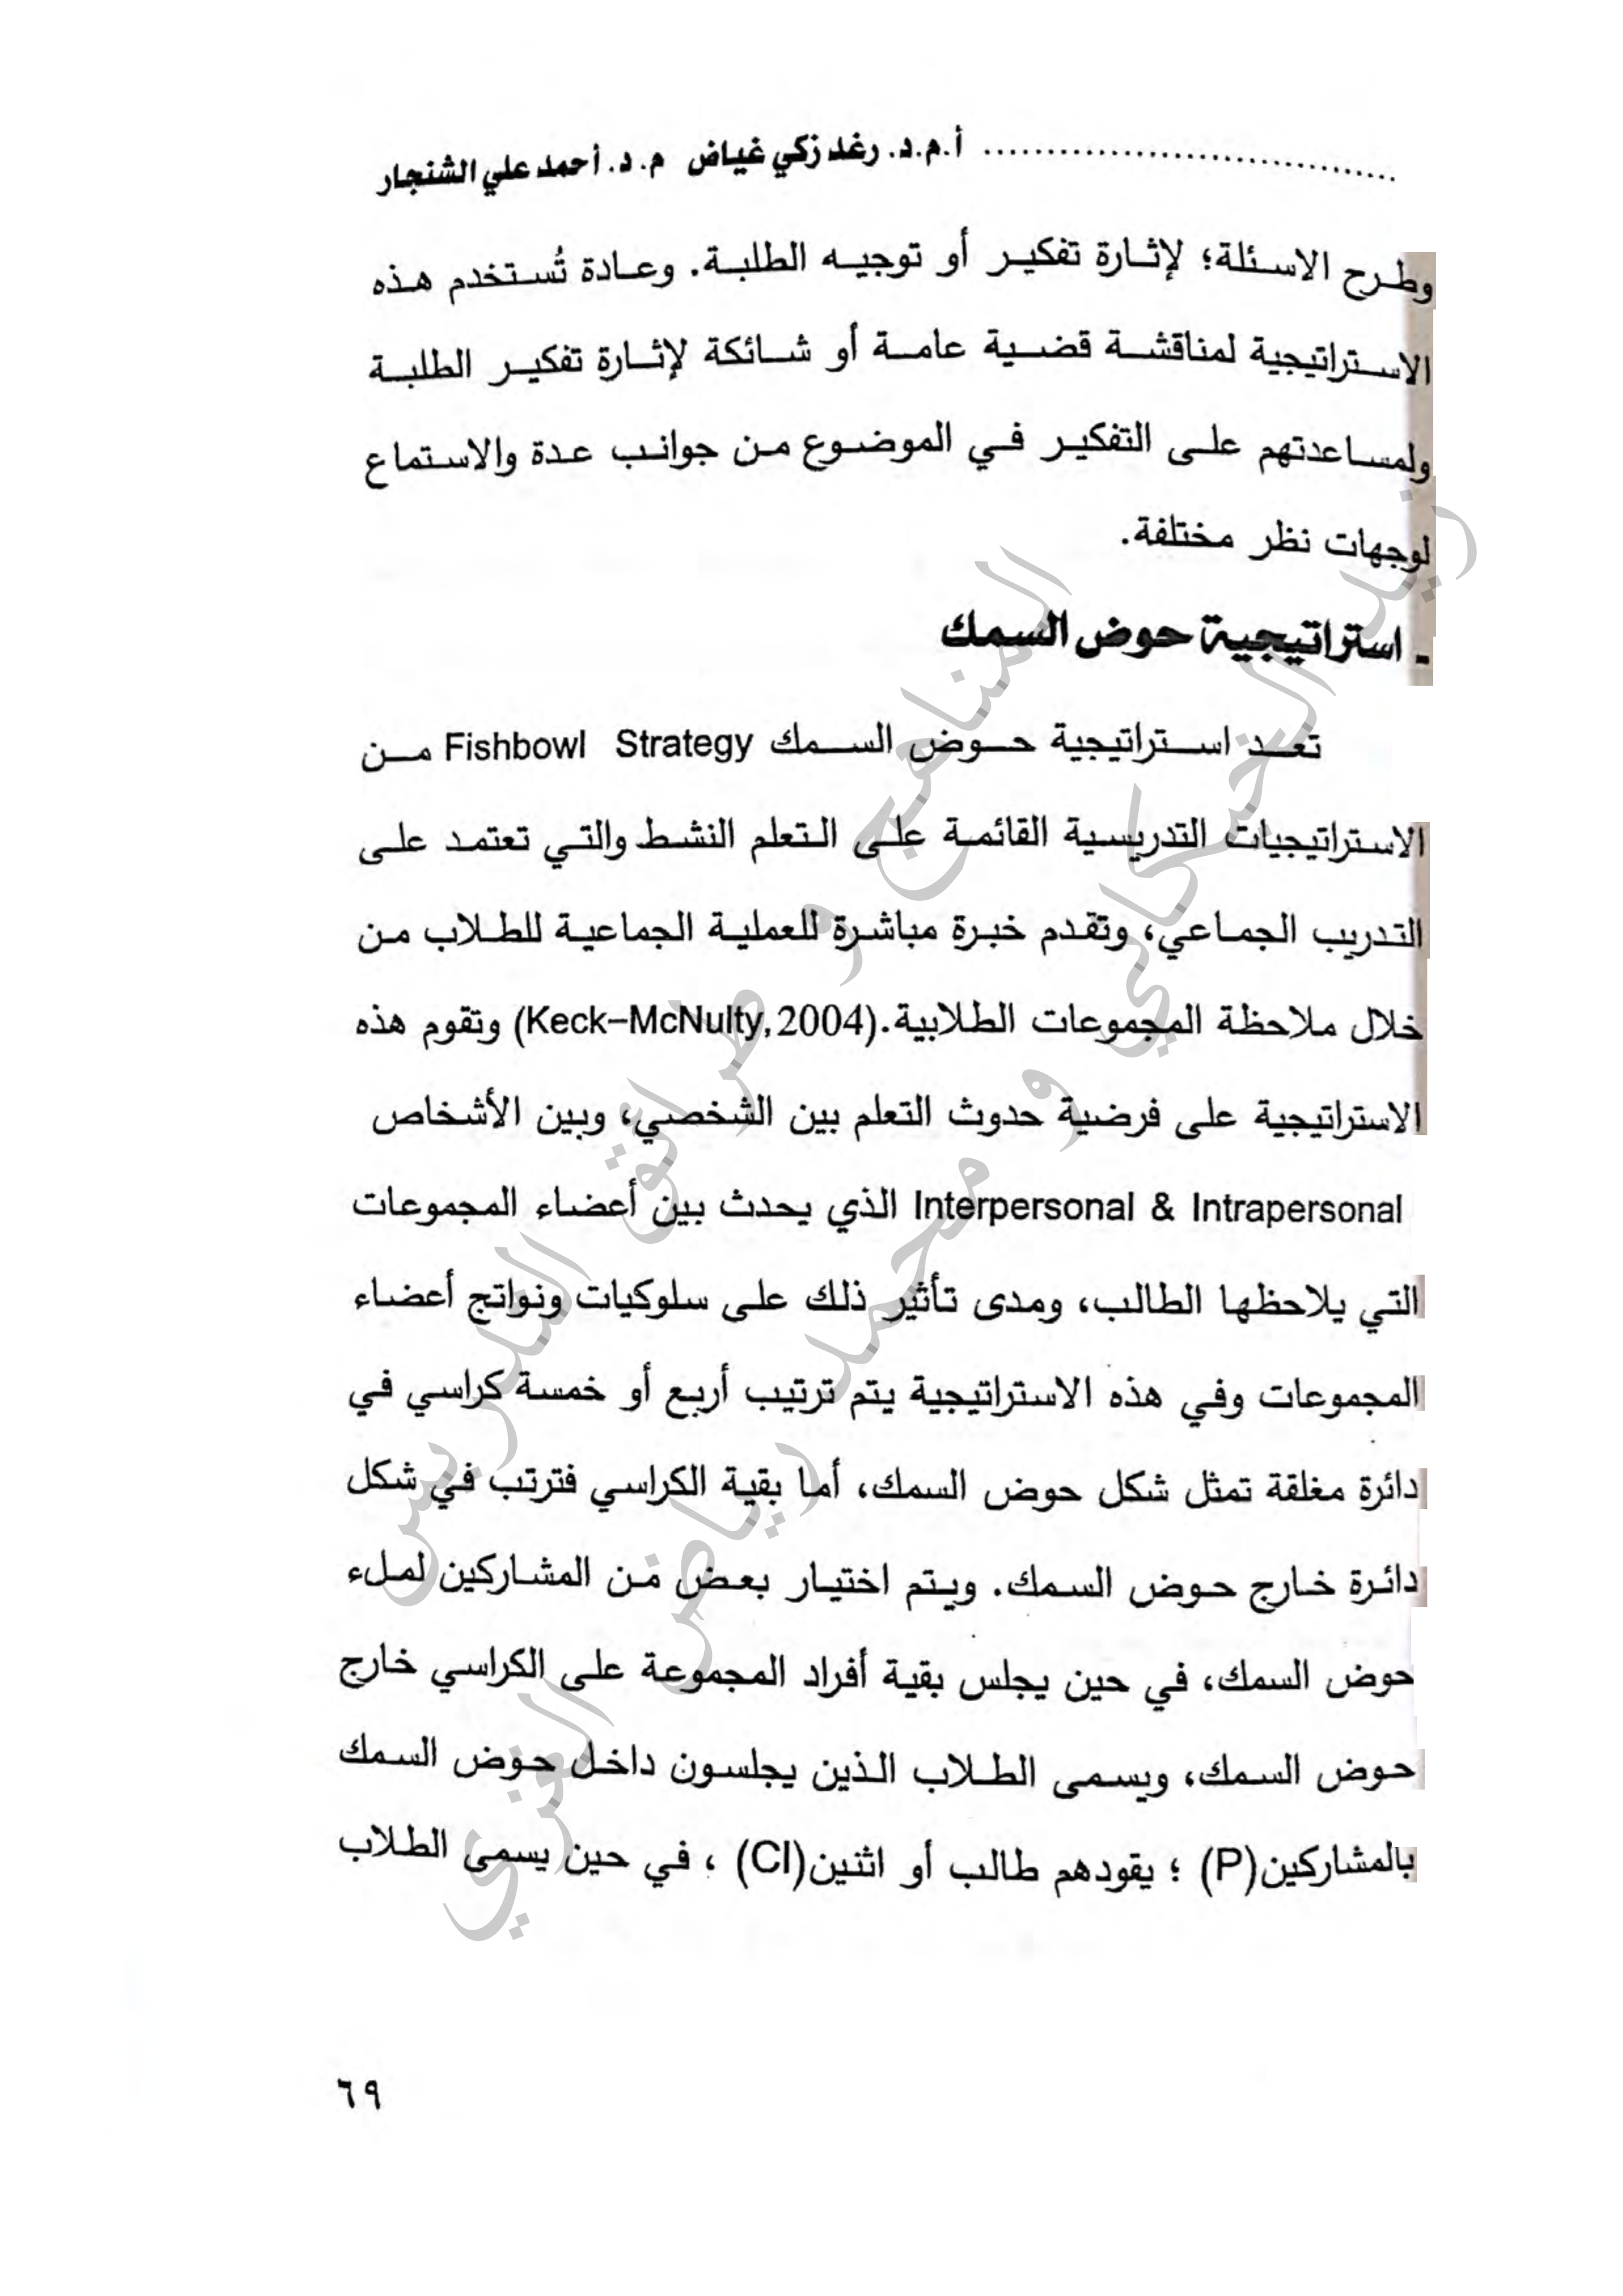 أ.م.د. رغد زكي غياض م.د. أحمد علي الشنجار
وطرح الاسئلة؛ لإثارة تفكير أو توجيه الطلبة. وعادة تُستخدم هذه
الاستراتيجية لمناقشة قضية عامة أو شائكة لإثارة تفكير الطلبة
ولمساعدتهم على التفكير في الموضوع من جوانب عدة والاستماع
لوجهات نظر مختلفة.
- استراتيجية حوض السمك
تعد استراتيجية حوض السمك Fishbowl Strategy من
الاستراتيجيات التدريسية القائمة على التعلم النشط والتي تعتمد على
التدريب الجماعي، وتقدم خبرة مباشرة للعملية الجماعية للطلاب من
خلال ملاحظة المجموعات الطلابية.(Keck–McNulty,2004) وتقوم هذه
الاستراتيجية على فرضية حدوث التعلم بين الشخصي، وبين الأشخاص
Interpersonal & Intrapersonal الذي يحدث بين أعضاء المجموعات
التي يلاحظها الطالب، ومدى تأثير ذلك على سلوكيات ونواتج أعضاء
المجموعات وفي هذه الاستراتيجية يتم ترتيب أربع أو خمسة كراسي في
دائرة مغلقة تمثل شكل حوض السمك، أما بقية الكراسي فترتب في شكل
دائرة خارج حوض السمك. ويتم اختيار بعض من المشاركين لملء
حوض السمك، في حين يجلس بقية أفراد المجموعة على الكراسي خارج
حوض السمك، ويسمى الطلاب الذين يجلسون داخل حوض السمك
بالمشاركين(P) ؛ يقودهم طالب أو اثنين(Cl) ، في حين يسمى الطلاب
٦٩
المناهج و طرائق التدريس
زيد الخيكاني و محمد رياض الغزي